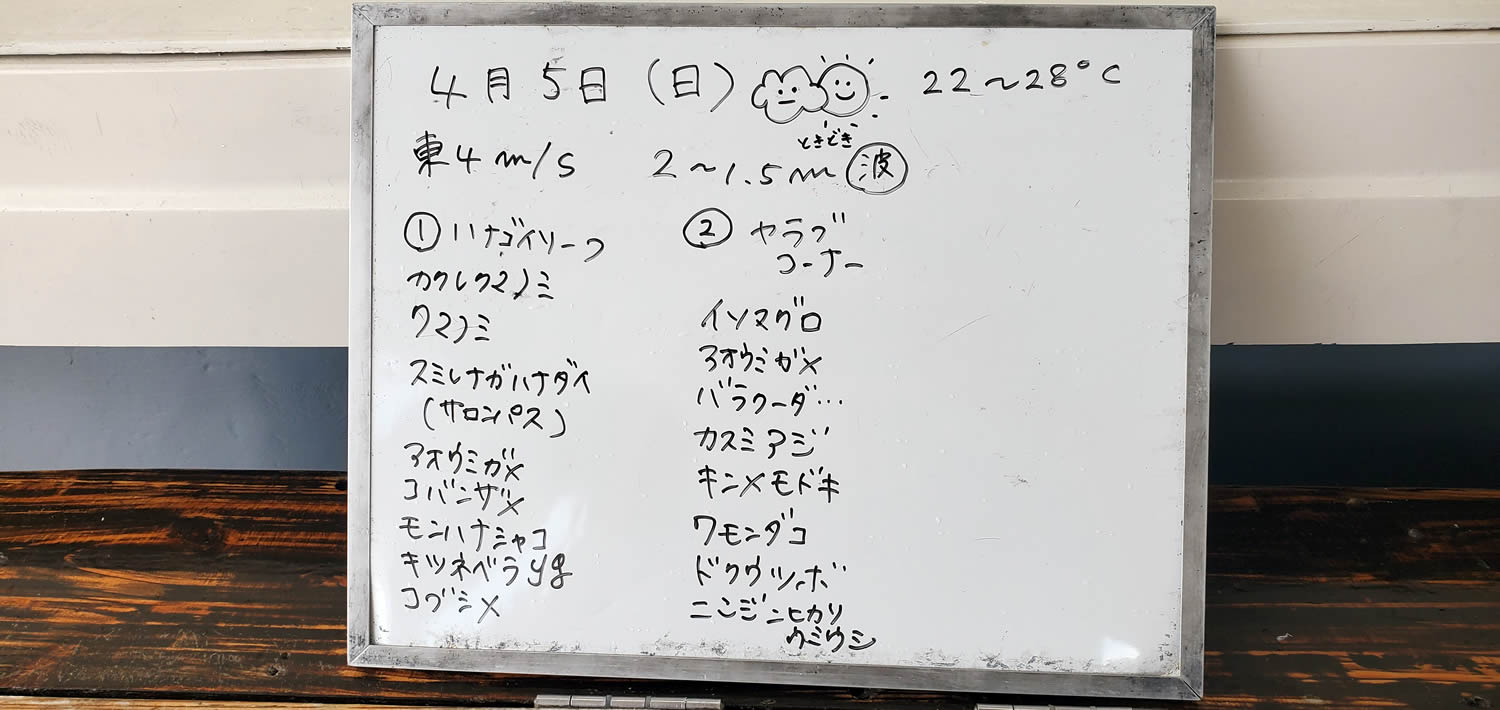 4月5日(日) 22～28°C
ときどき
東4m/s 2～1.5m 波
① ハナゴイリーフ
カクレクマノミ
クマノミ
スミレナガハナダイ
(サロンパス)
アオウミガメ
コバンザメ
モンハナシャコ
キツネベラyg
コブシメ
② ヤラブ
コーナー
イソマグロ
アオウミガメ
バラクーダ…
カスミアジ
キンメモドキ
ワモンダコ
ドクウツボ
ニンジンヒカリ
ウミウシ